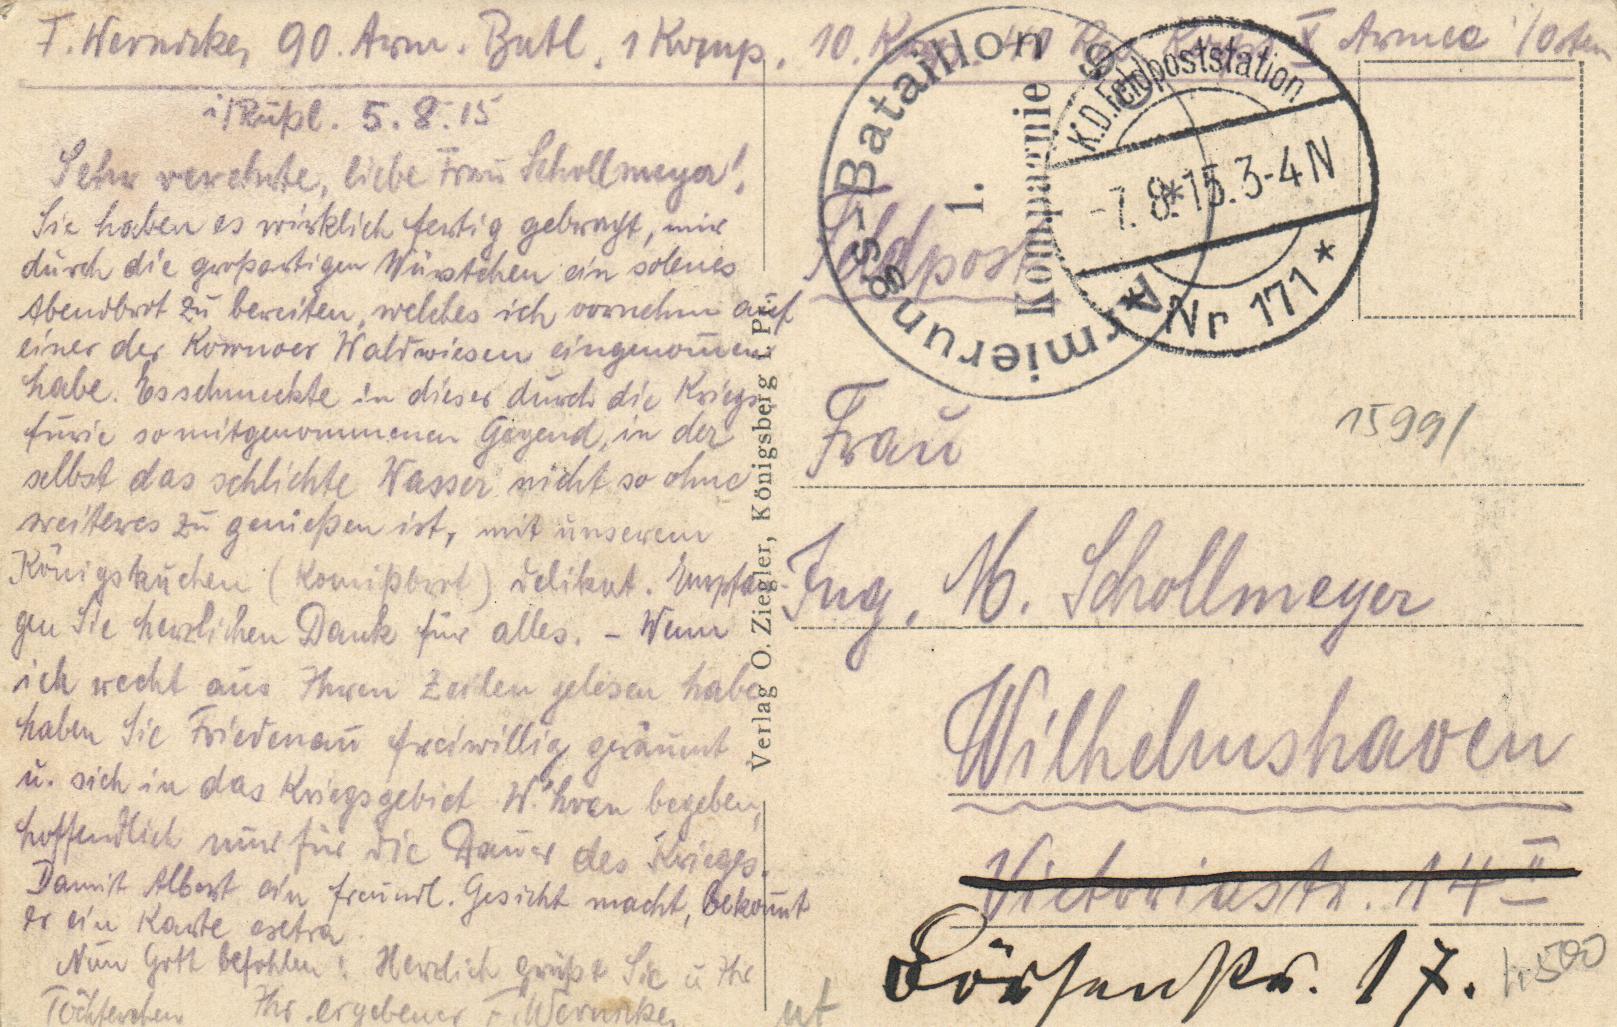 F. Wernicke, 90. Arm. Batl. 1 Komp. 10. Armee i/Osten
i/Rußl. 5.8.15
Sehr verehrte, liebe Frau Schollmeyer!
Sie haben es wirklich fertig gebracht, mir
durch die großartigen Würstchen ein solenes
Abendbrot zu bereiten, welches ich vornehm auf
einer der Kownoer Waldwiesen eingenommen
habe. Es schmeckte in dieser durch die Kriegs-
furie so mitgenommenen Gegend, in der
selbst das schlichte Wasser nicht so ohne
weiteres zu genießen ist, mit unserem
Königskuchen (Komißbrot) delikat. Empfan-
gen Sie herzlichen Dank für alles. – Wenn
ich recht aus Ihren Zeilen gelesen habe
haben Sie Friedenau freiwillig geräumt
u. sich in das Kriegsgebiet W.'hven begeben,
hoffendlich nur für die Dauer des Krieges.
Damit Albert ein freundl. Gesicht macht, bekommt
er ein Karte esetra.
Nun Gott befohlen! Herzlich grüßt Sie u Ihr
Töchterchen Ihr ergebener F. Wernicke
Verlag O. Ziegler, Königsberg i. Pr.
Armierungs-Bataillon 90
1.
Kompagnie
K.D. Feldpoststation
-7.8.15.3-4N
* Nr 171 *
Feldpost
Frau
Ing. M. Schollmeyer
Wilhelmshaven
Victoriastr. 14 II
Börsenstr. 17.
1599/